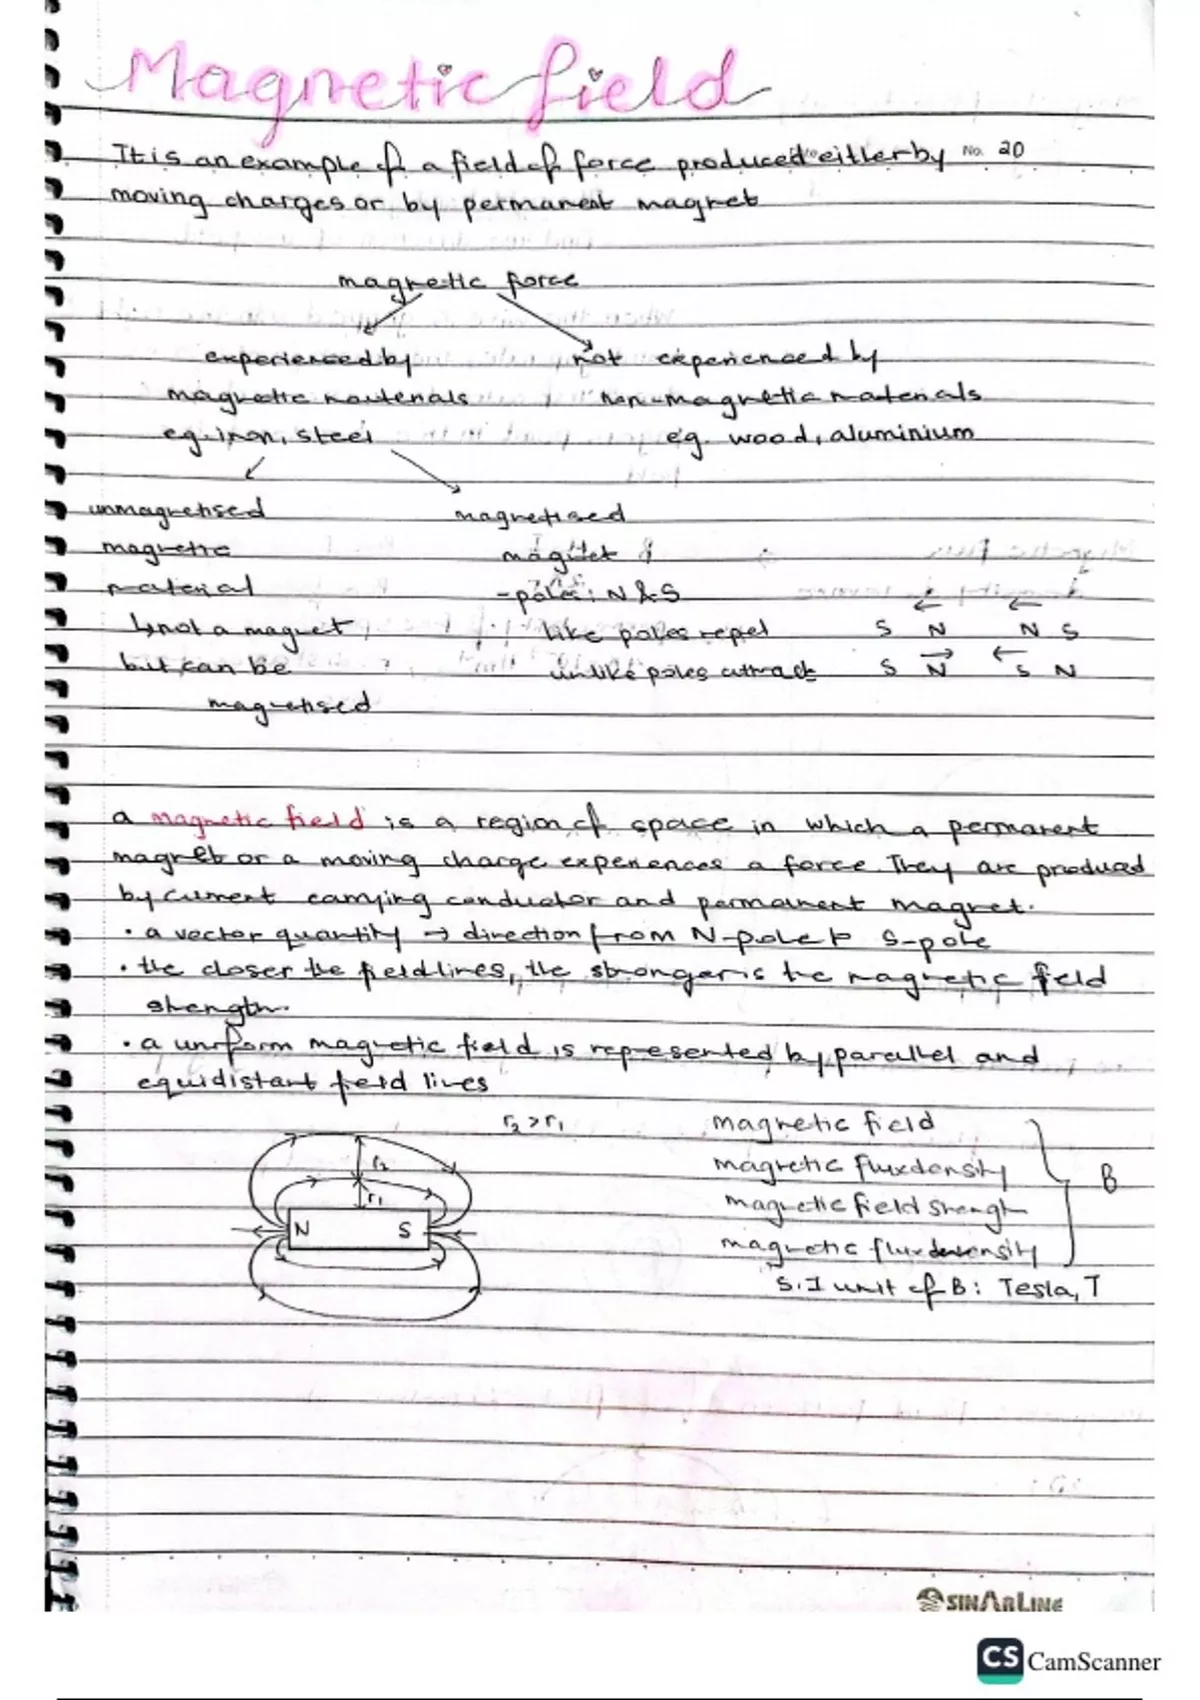 Magnetic field
It is an example of a field of force produced either by No. 20
moving charges or by permanent magnet
magnetic force
experienced by not experienced by
magnetic materials non-magnetic materials
eg. iron, steel eg. wood, aluminium
unmagnetised magnetised
magnetic magnet
material -poles: N & S
↳not a magnet like poles repel S N N S
but can be unlike poles attract S N S N
magnetised
a magnetic field is a region of space in which a permanent
magnet or a moving charge experiences a force. They are produced
by current carrying conductor and permanent magnet.
• a vector quantity → direction from N-pole to S-pole
• the closer the field lines, the stronger is the magnetic field
strength.
• a uniform magnetic field is represented by parallel and
equidistant field lines
r₂ > r₁ magnetic field
r₂ magnetic flux density B
r₁ magnetic field strength
N S magnetic flux density
S.I unit of B: Tesla, T
SINARLINE
CS CamScanner